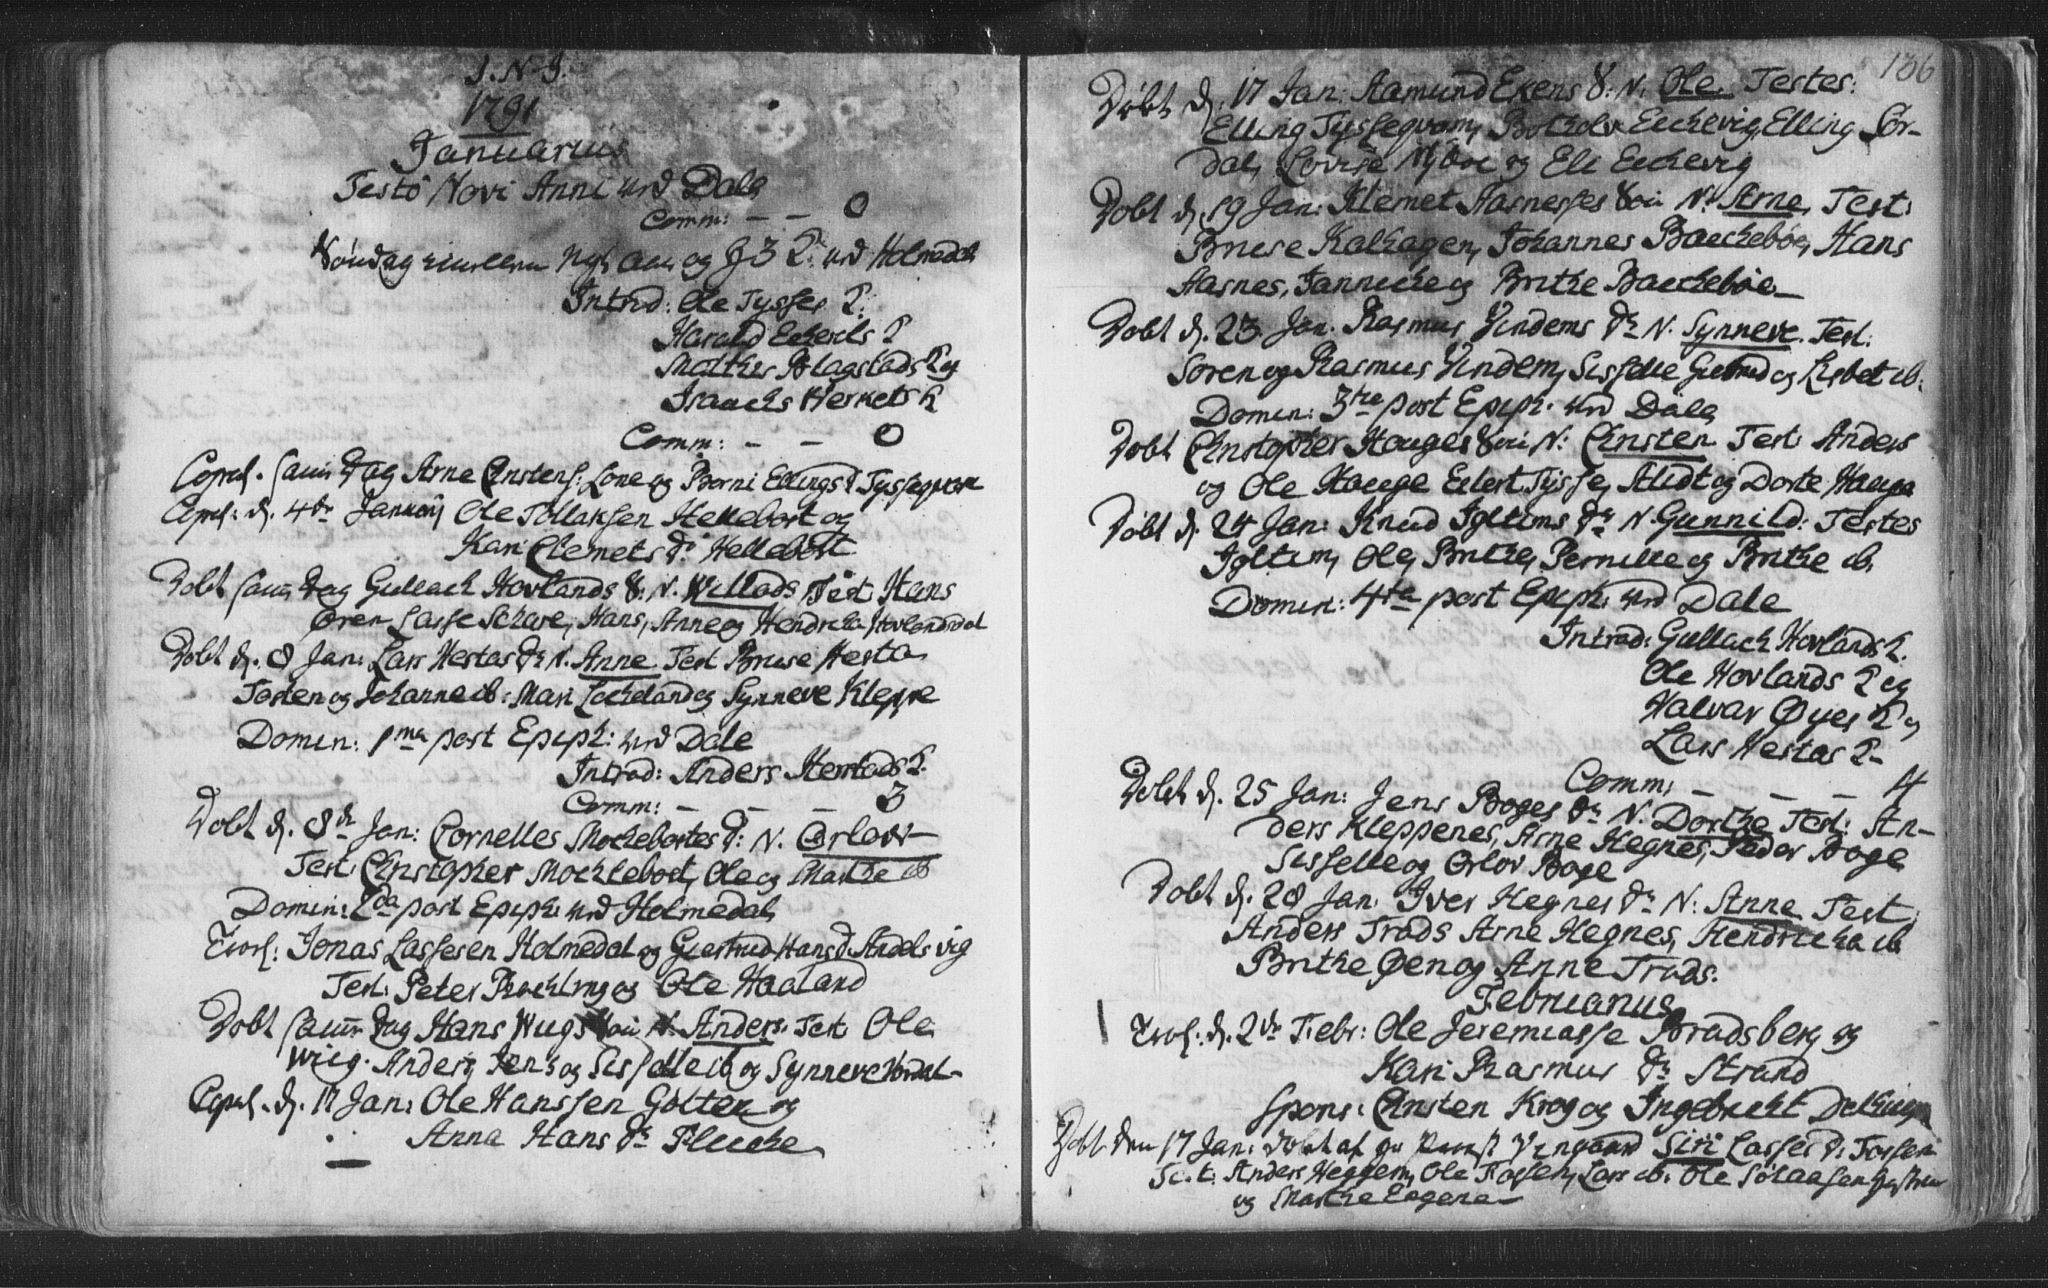 J. N. J.
1791
Januarius
Festo Novi Anni ved Dale
Comm: - - 0
Søndag imellem Nyt aar og H 3 K. ved Holmedal
Introd: Ole Tysses K.
Harald Eckerels K
Mathis Blagstads K og
Comm: - - 0
Copul. samme Dag Arne Christens: Lone og Berni Ellings D Tysseqvam
Copul: d. 4de Januarij Ole Tollaksen Hellebost og
Kari Clemets Dr Hellebost
Døbt samme Dag Gullach Hovlands S. N. Willads Test: Hans
Øren Lasse Schare, Hans, Anne og Hendricha Hovlandsdal
Døbt d. 8 Jan: Lars Hestas Dr N. Anne Test Bruse Hesta
Torsten og Johanne ib: Mari Lockeland og Synneve Kleppe
Domin: 1ma post Epiph: ved Dale
Introd: Anders Herstads K.
Comm: - - - 3
Døbt d. 8de Jan: Cornelles Mochebostes D: N. Orlow
Test: Christopher Mochlebost, Ole og Marthe ib
Domin: 2da post Epiph: ved Holmedal
Trol: Jonas Lassesen Holmedal og Giertrud Hans D Andels vig
Test: Peter Bochling og Ole Haaland
Døbt samme Dag Hans Wiigs Søn N. Anders. Test Ole
Wiig. Anders, Jens og Sisselle ib og Synneve Vardal
Copul. d. 17 Jan: Ole Hanssen Gotten og
Anna Hans Dr Flecke
186
Døbt d. 17 Jan: Aamund Ekens S: N. Ole. Testes:
Elling Tysseqvam, Botholv Eichevig, Elling Sør-
dal, Lovise Nybøe og Eli Eichevig
Døbt d. 19 Jan: Klemet Aarnesses Søn N. Arne, Test:
Bruse Kalhagen, Johannes Baechebøe, Hans
Aarnes, Janniche og Brithe Baechebøe
Døbt d. 23 Jan. Rasmus Vindems Dr N. Synneve. Test:
Soren og Rasmus Vindem, Sisselle Giertrud og Lisbet ib:
Domin: 3tia post Epiph. ved Dale
Døbt Christopher Hauges Søn N: Christen Test: Anders
og Ole Hauge Eilert Tysse, Alidt og Dorte Hauge
Døbt d. 24 Jan: Knud Igltims Dr N. Gunnild: Testes
Igltim, Ole, Brithe, Pernille og Brithe ib.
Domin: 4ta post Epiph: ved Dale
Introd: Gullach Hovlands K.
Ole Hovlands K og
Halvar Øyes K og
Lars Hestas K
Comm: - - - 4
Døbt d. 25 Jan: Jens Boges Dr N. Dorthe Test: An-
ders Kleppenes, Arne Hegnes, Peder Boge
Sisselle og Orlov Boge
Døbt d. 28 Jan: Iver Hegnes Dr N: Anne Test:
Anders Trads Arne Hegnes, Hendricha ib
Brithe Øen og Anne Trads.
Februarius
Trol: d. 2de Febr: Ole Jeremiasse Bradsberg og
Kari Rasmus Dr Strand
Spons: Christen Krog og Ingebricht
Døbt den 17 Jan: døbt af Siri Lasses D: Fossen
Test: Anders Heggem, Ole Fossen, Lars ib. Ole
og Marthe